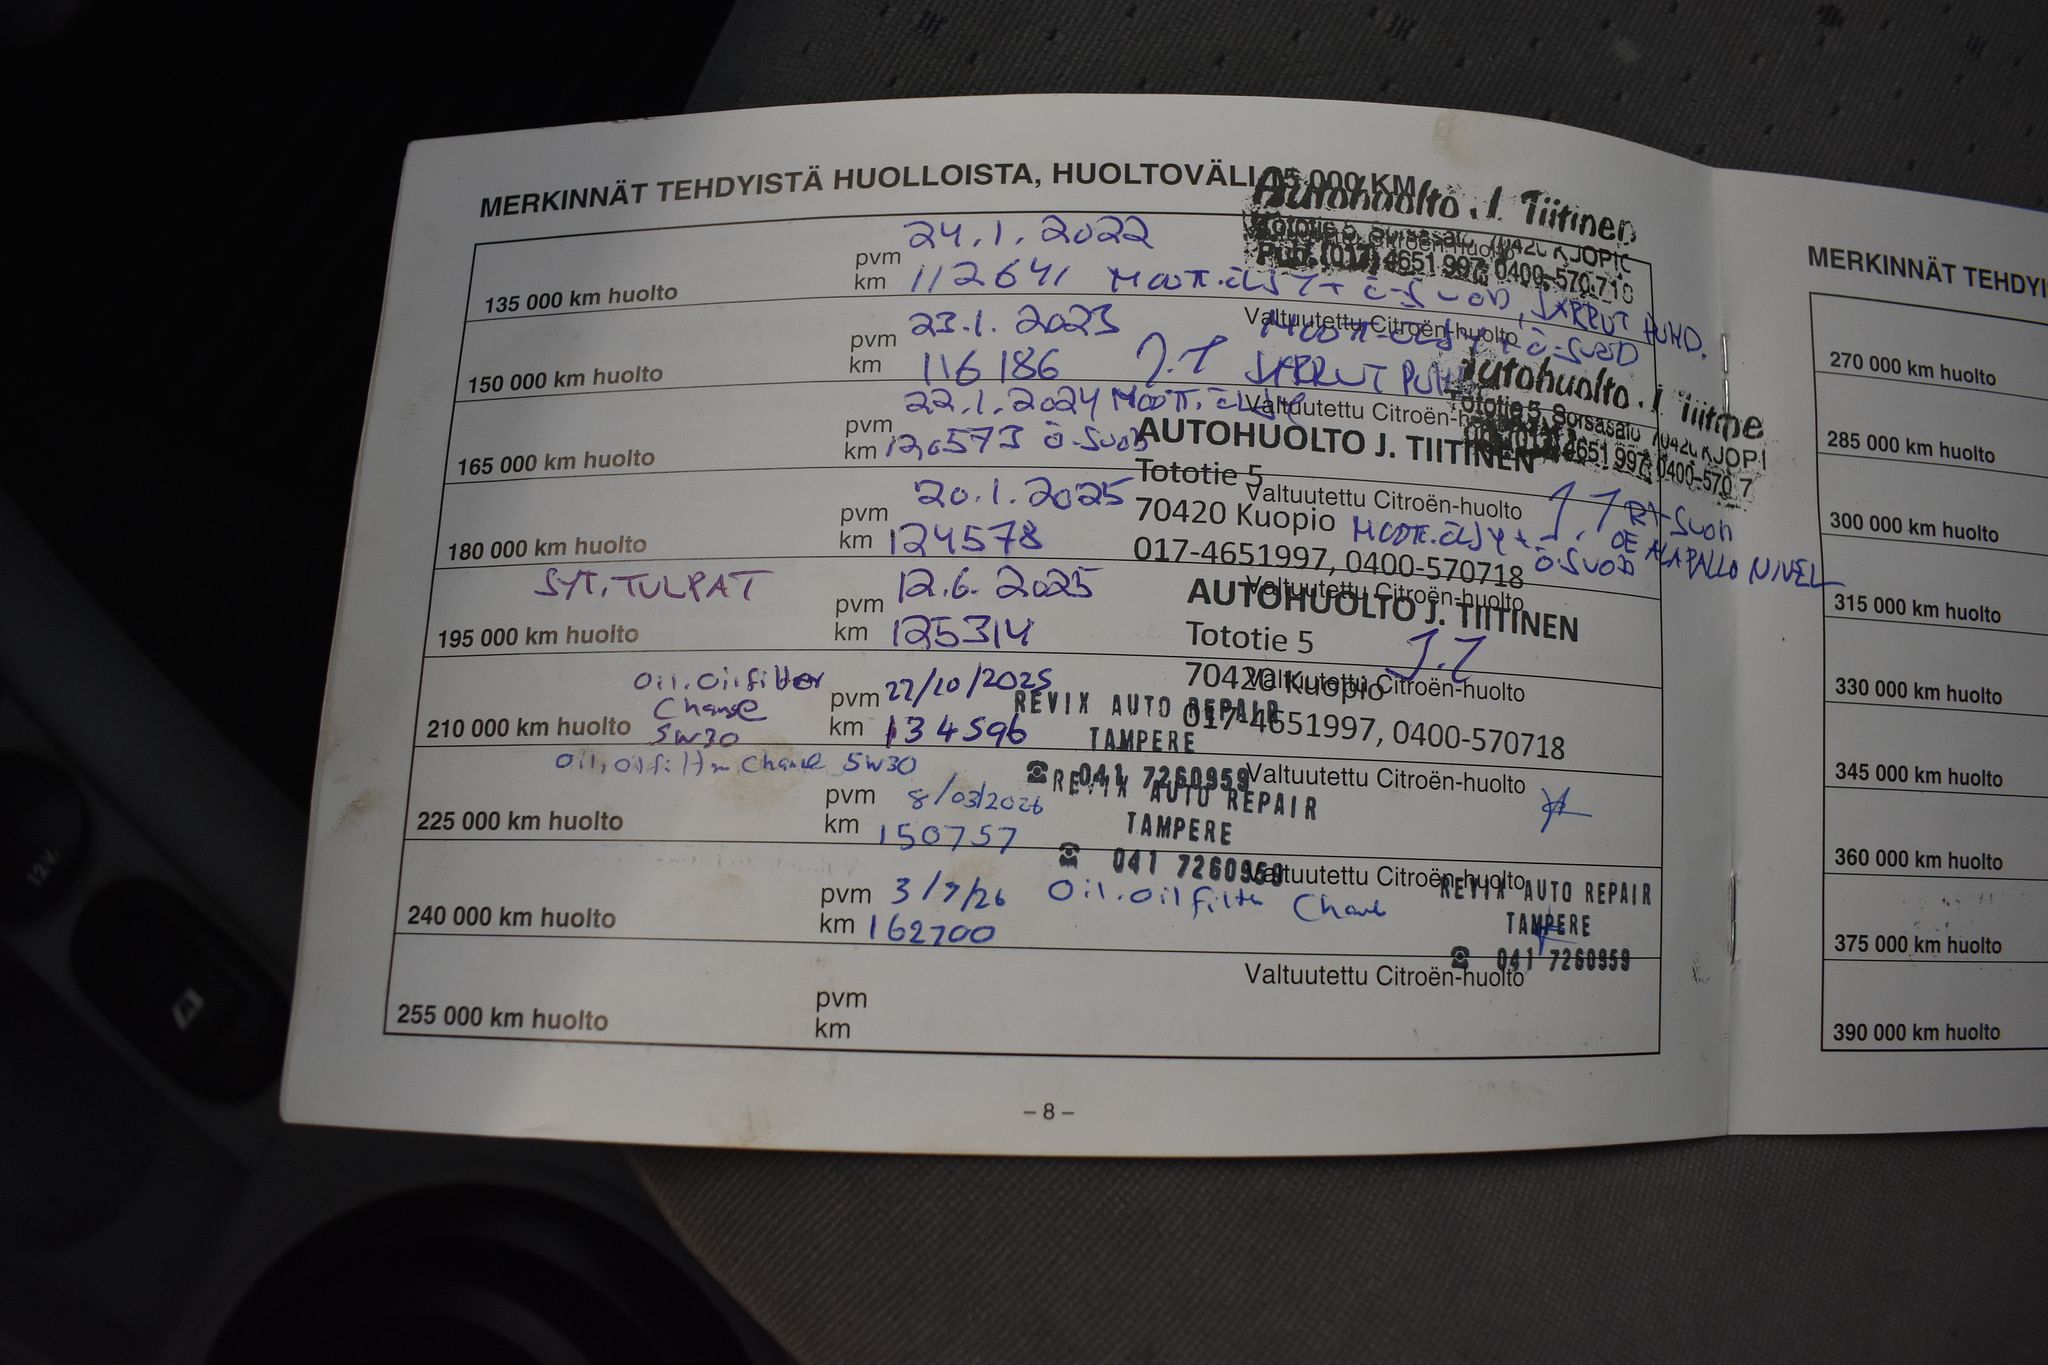 MERKINNÄT TEHDYISTÄ HUOLLOISTA, HUOLTOVÄLI 15 000 KM
Autohuolto J. Tiitinen
Tototie 5, Sorsasalo 70420 KUOPIO
Puh. (017) 4651 997, 0400-570 718
135 000 km huolto
pvm 24.1.2022
km 112641 MOOTT.ÖLJY + Ö-SUOD, JARRUT PUHD.
Valtuutettu Citroën-huolto
150 000 km huolto
pvm 23.1.2023
km 116186 J.T
MOOTT-ÖLJY + Ö-SUOD
JARRUT
Valtuutettu Citroën-huolto
Autohuolto J. Tiitine
Tototie 5, Sorsasalo 70420 KUOPI
4651 997, 0400-570 7
165 000 km huolto
pvm 22.1.2024 MOOTT.ÖLJY
km 120573 Ö-SUOD
Valtuutettu Citroën-huolto
AUTOHUOLTO J. TIITINEN
Tototie 5
70420 Kuopio
017-4651997, 0400-570718
180 000 km huolto
pvm 20.1.2025
km 124578
MOOTT.ÖLJY + Ö-SUOD
J.T
OE ALAPALLO NIVEL
Valtuutettu Citroën-huolto
SYT.TULPAT
195 000 km huolto
pvm 12.6.2025
km 125314
Valtuutettu Citroën-huolto
AUTOHUOLTO J. TIITINEN
Tototie 5 J.T
70420 Kuopio
017-4651997, 0400-570718
Oil.Oilfilter
Change
5w30
210 000 km huolto
pvm 22/10/2025
km 134596
Valtuutettu Citroën-huolto
REVIX AUTO REPAIR
TAMPERE
☎ 041 7260959
Oil,oilfilter Change 5w30
225 000 km huolto
pvm 8/03/2026
km 150757
Valtuutettu Citroën-huolto
REVIX AUTO REPAIR
TAMPERE
☎ 041 7260959
240 000 km huolto
pvm 3/7/26 Oil.oilfilter Change
km 162700
Valtuutettu Citroën-huolto
REVIX AUTO REPAIR
TAMPERE
☎ 041 7260959
255 000 km huolto
pvm
km
Valtuutettu Citroën-huolto
– 8 –
MERKINNÄT TEHDYI
270 000 km huolto
285 000 km huolto
300 000 km huolto
315 000 km huolto
330 000 km huolto
345 000 km huolto
360 000 km huolto
375 000 km huolto
390 000 km huolto
12V